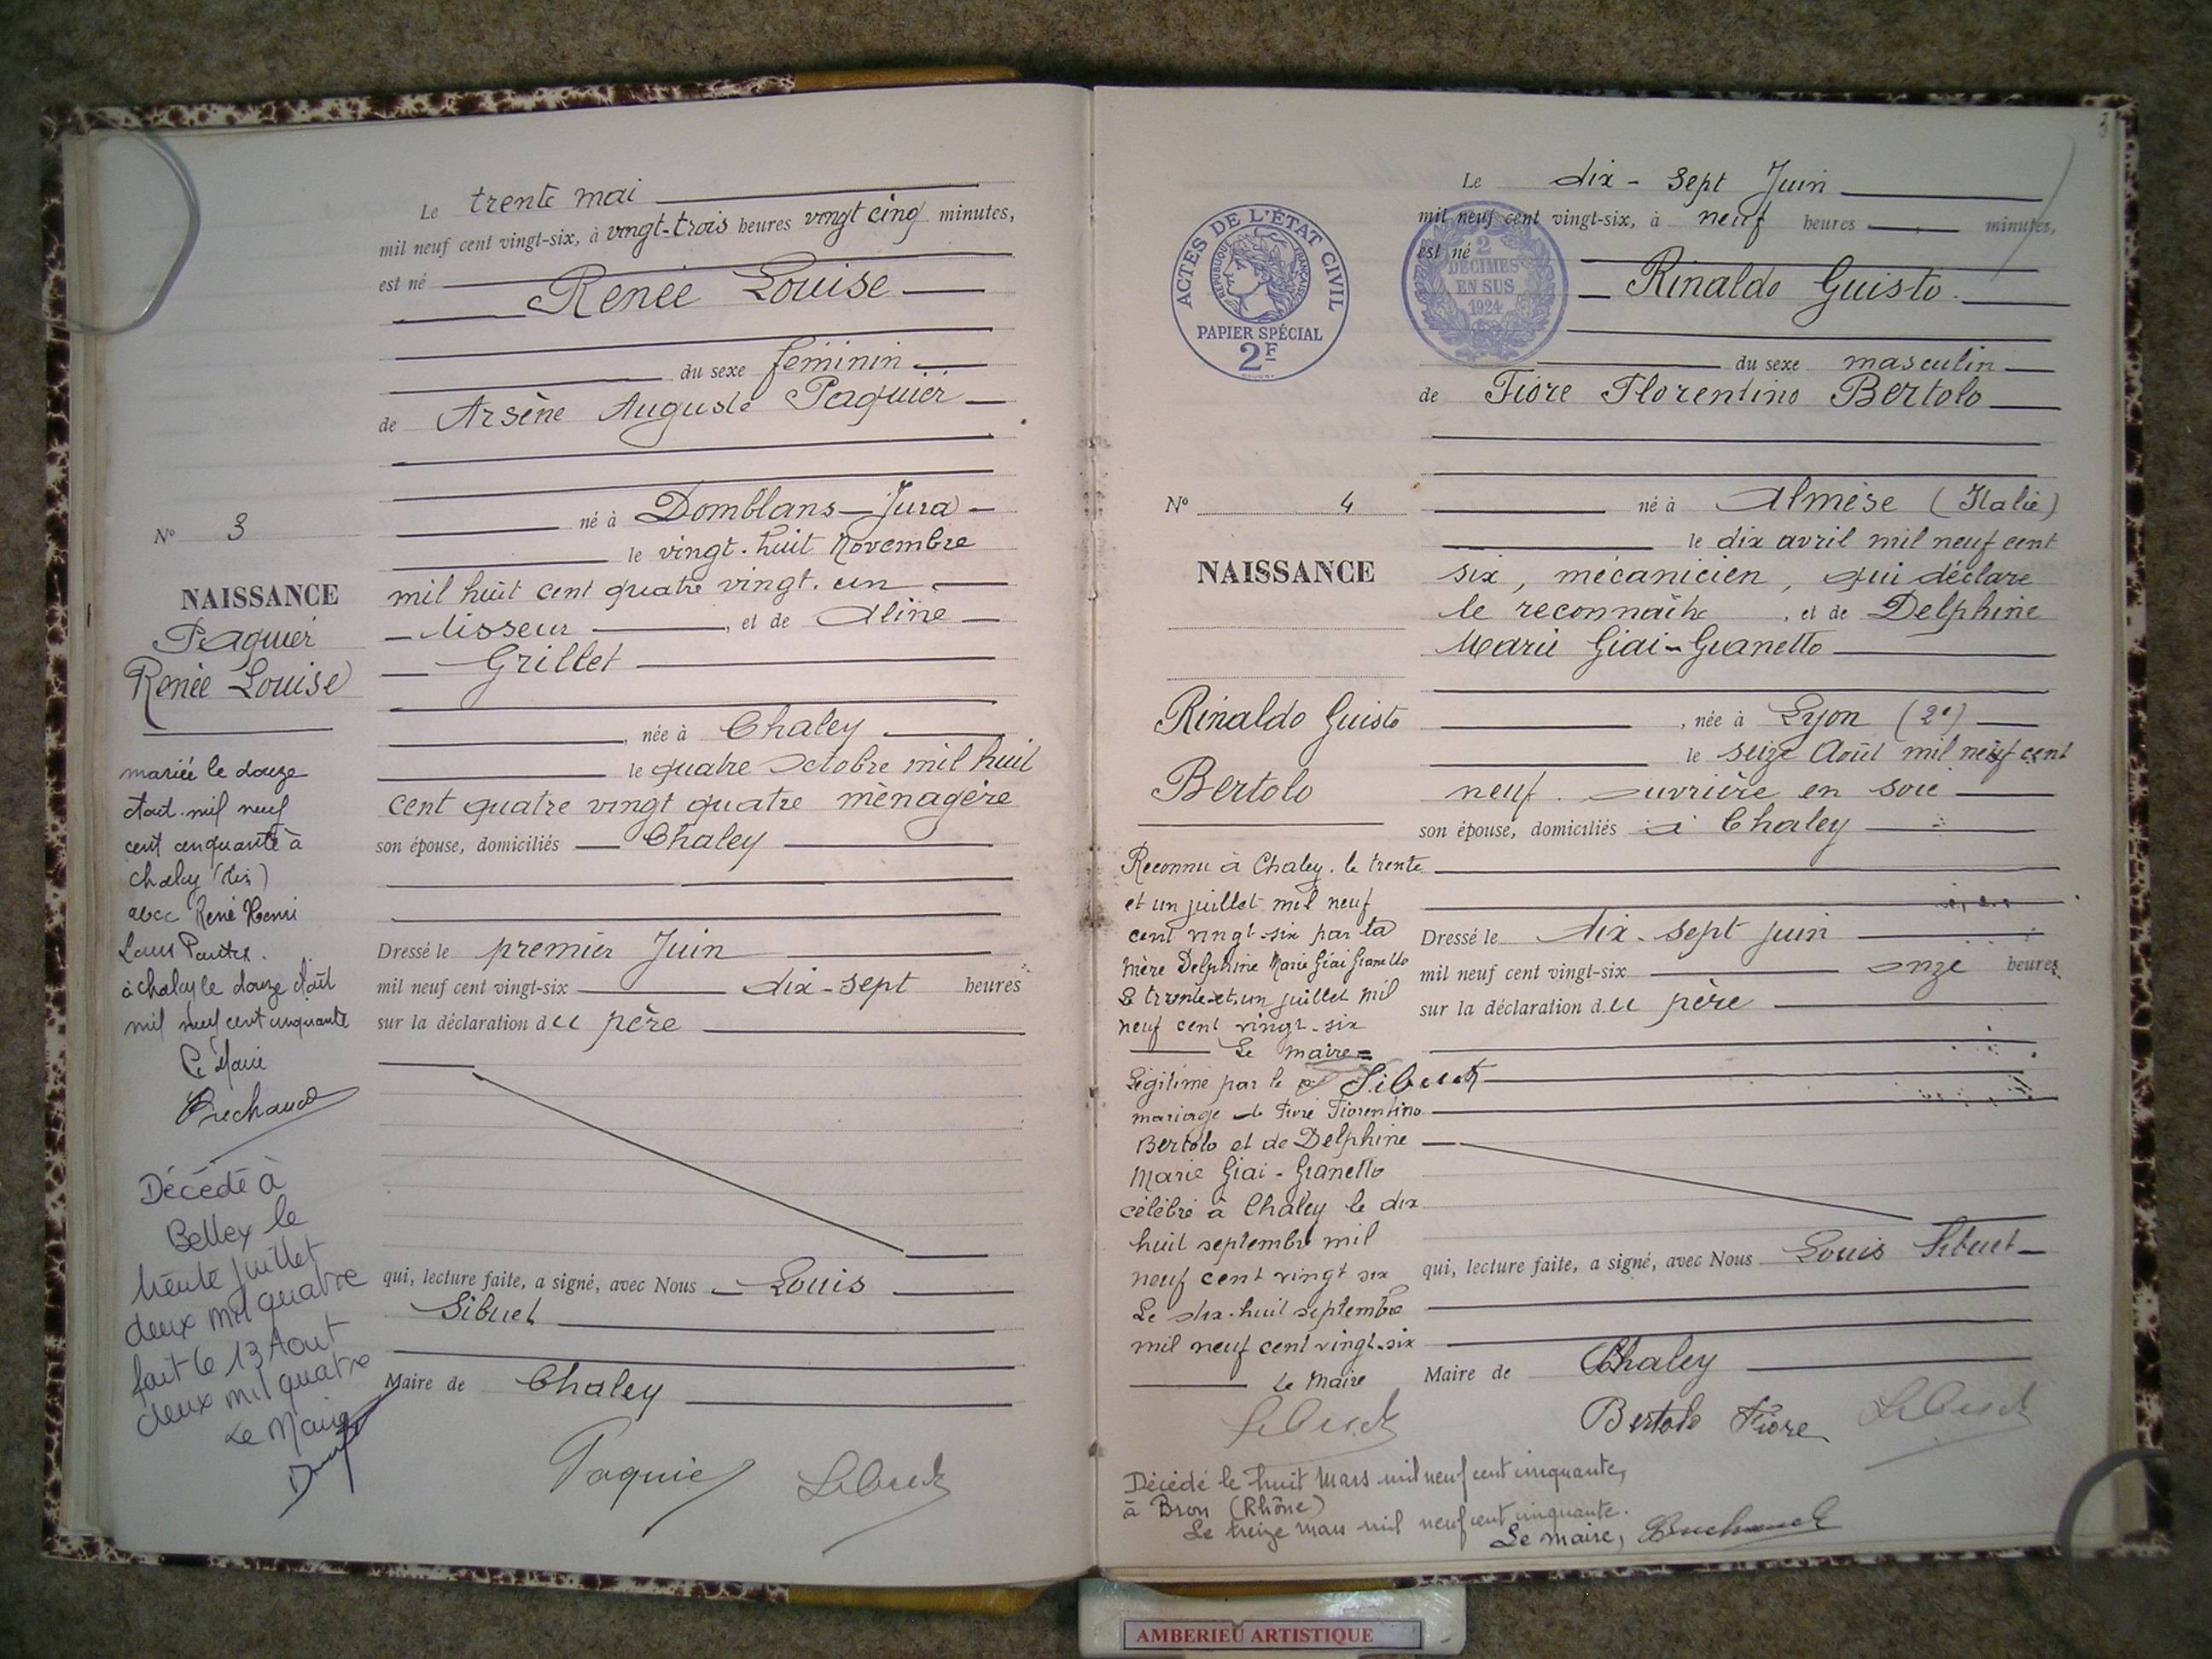 Le trente mai
mil neuf cent vingt-six, à vingt-trois heures vingt cinq minutes,
est né
Renée Louise
du sexe féminin
de Arsène Auguste Paquier
né à Domblans Jura
le vingt. huit Novembre
mil huit cent quatre vingt. un
lisseur, et de Aline
Grillet
, née à Chaley
le quatre Octobre mil huit
cent quatre vingt quatre ménagère
son épouse, domiciliés Chaley
Dressé le premier Juin
mil neuf cent vingt-six dix-sept heures
sur la déclaration du père
qui, lecture faite, a signé, avec Nous Louis
Sibuet
Maire de Chaley
Paquier Sibuet
N° 3
NAISSANCE
Paquier
Renée Louise
mariée le douze
Août mil neuf
cent cinquante à
Chaley (Ain)
avec René Henri
Louis
à Chaley le douze Août
mil neuf cent cinquante
Le Maire
Décédé à
Belley le
trente juillet
deux mil quatre
fait le 13 Aout
deux mil quatre
Le Maire
3
ACTES DE L'ÉTAT CIVIL
RÉPUBLIQUE FRANÇAISE
PAPIER SPÉCIAL
2F
2
DÉCIMES
EN SUS
1924
Le dix-sept Juin
mil neuf cent vingt-six, à neuf heures minutes,
est né
Rinaldo Guisto
du sexe masculin
de Fiore Florentino Bertolo
né à Almèse (Italie)
le dix avril mil neuf cent
six, mécanicien, qui déclare
le reconnaître, et de Delphine
Marie Giai-Gianetto
, née à Lyon (2e)
le seize Août mil neuf cent
neuf. ouvrière en soie
son épouse, domiciliés à Chaley
Dressé le dix-sept juin
mil neuf cent vingt-six onze heures
sur la déclaration du père
qui, lecture faite, a signé, avec Nous Louis Sibuet
Maire de Chaley
Bertolo Fiore Sibuet
N° 4
NAISSANCE
Rinaldo Guisto
Bertolo
Reconnu à Chaley. le trente
et un juillet mil neuf
cent vingt-six par la
mère Delphine Marie Giai Gianetto
Le trente-et-un juillet mil
neuf cent vingt-six
Le maire
Sibuet
Légitimé par le
mariage de Fiore Fiorentino
Bertolo et de Delphine
Marie Giai-Gianetto
célébré à Chaley le dix
huit septembre mil
neuf cent vingt six
Le dix-huit septembre
mil neuf cent vingt-six
Le Maire
Sibuet
Décédé le huit Mars mil neuf cent cinquante,
à Bron (Rhône)
Le treize Mars mil neuf cent cinquante.
Le maire,
AMBERIEU ARTISTIQUE